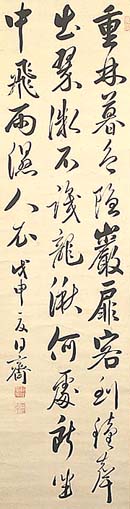 重林暮色隐巖扉客到鐘聲
出翠微不識龍湫何處所半
中飛雨濕人衣 戊申夏日齋